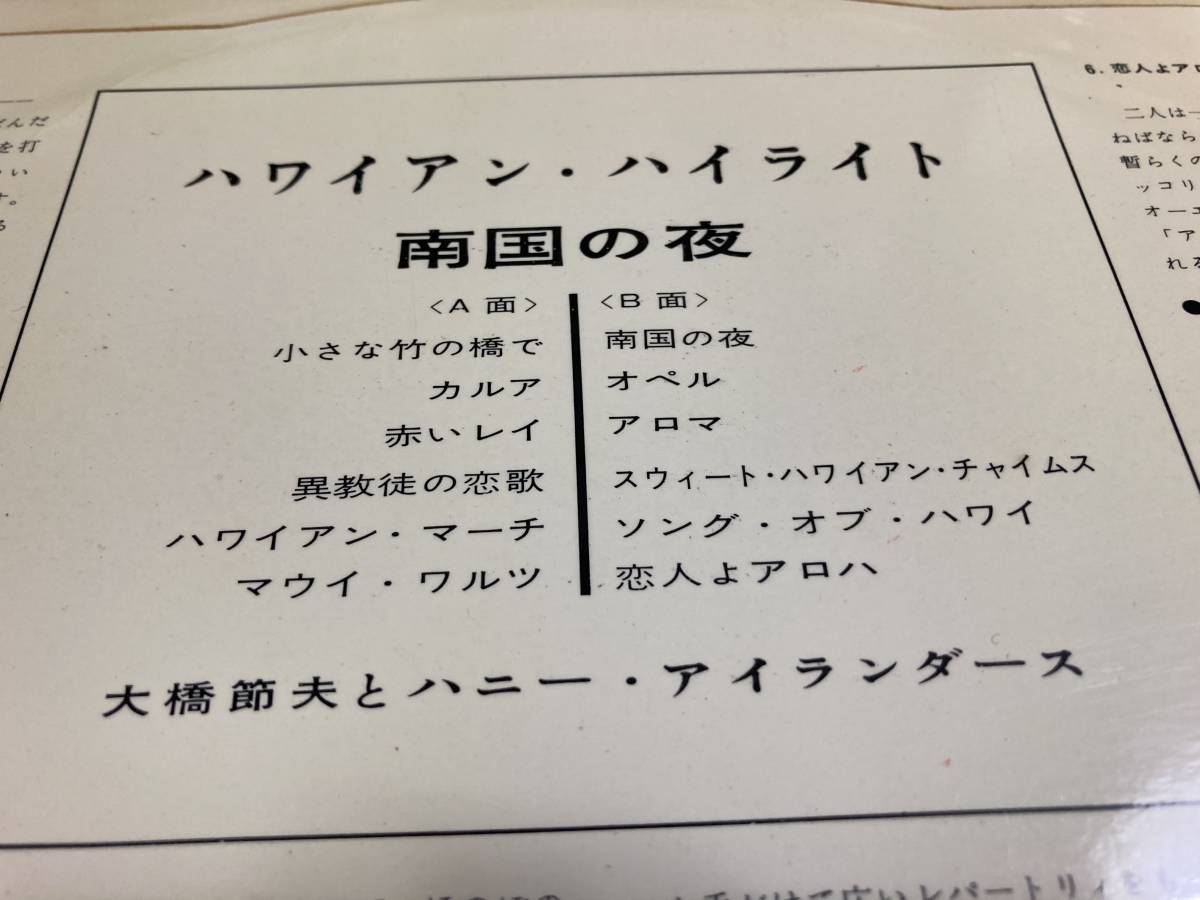 ハワイアン・ハイライト
南国の夜
〈A 面〉
小さな竹の橋で
カルア
赤いレイ
異教徒の恋歌
ハワイアン・マーチ
マウイ・ワルツ
〈B 面〉
南国の夜
オペル
アロマ
スウィート・ハワイアン・チャイムス
ソング・オブ・ハワイ
恋人よアロハ
大橋節夫とハニー・アイランダース
6. 恋人よアロ
二人は一
ねばなら
暫らくの
ッコリ
オーエ
「ア
れる
んだ
を打
い
す。
る
手だけで広いレパートリィをも